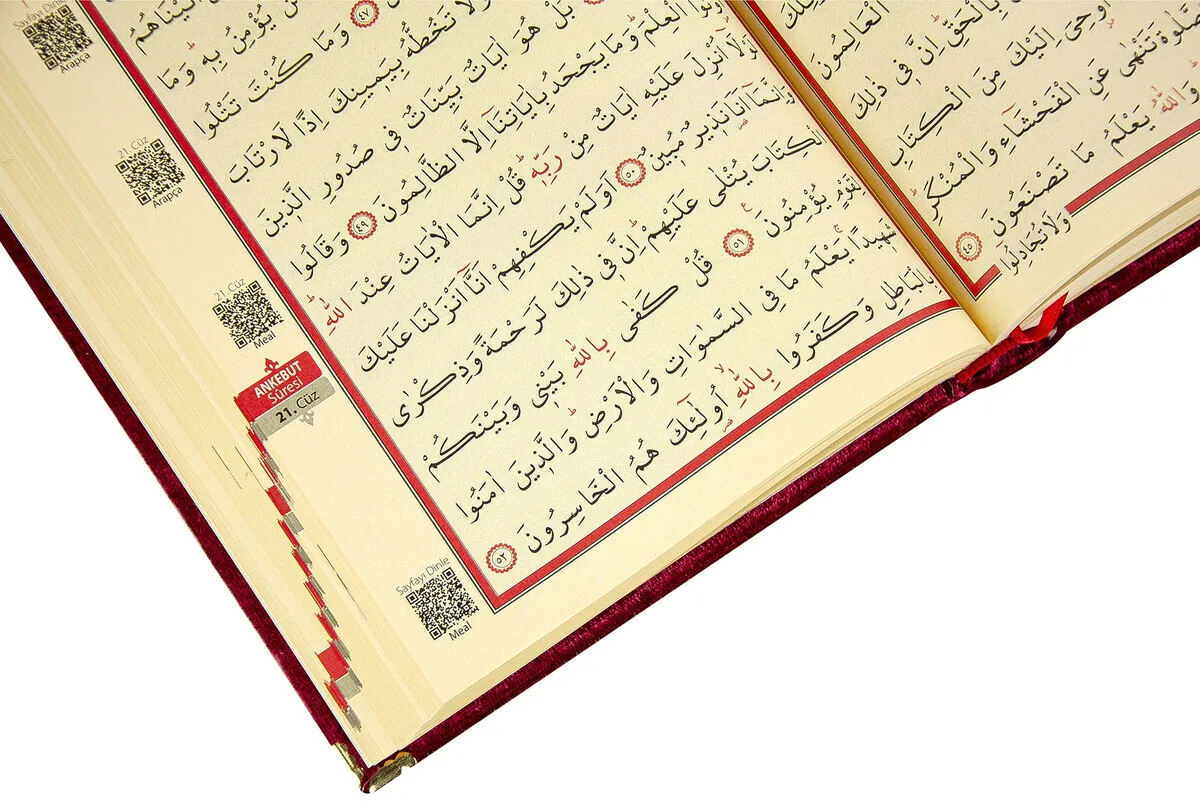 بِالْحَقِّ اِنَّ فٖى ذٰلِكَ
الْعَالِمُونَ
اُو۫حِىَ اِلَيْكَ مِنَ الْكِتَابِ
تَنْهٰى عَنِ الْفَحْشَٓاءِ وَالْمُنْكَرِ
وَاللّٰهُ يَعْلَمُ مَا تَصْنَعُونَ ٤٥
وَلَا تُجَادِلُٓوا
اٰتَيْنَاهُمُ
مَنْ يُؤْمِنُ بِهٖ وَمَا
٤٧ وَمَا كُنْتَ تَتْلُوا
وَلَا تَخُطُّهُ بِيَمٖينِكَ اِذًا لَارْتَابَ
بَلْ هُوَ اٰيَاتٌ بَيِّنَاتٌ فٖى صُدُورِ الَّذٖينَ
الْعِلْمَ وَمَا يَجْحَدُ بِاٰيَاتِنَٓا اِلَّا الظَّالِمُونَ ٤٩ وَقَالُوا
لَوْلَٓا اُنْزِلَ عَلَيْهِ اٰيَاتٌ مِنْ رَبِّهٖ قُلْ اِنَّمَا الْاٰيَاتُ عِنْدَ اللّٰهِ
وَاِنَّمَٓا اَنَا نَذٖيرٌ مُبٖينٌ ٥٠ اَوَلَمْ يَكْفِهِمْ اَنَّٓا اَنْزَلْنَا عَلَيْكَ
الْكِتَابَ يُتْلٰى عَلَيْهِمْ اِنَّ فٖى ذٰلِكَ لَرَحْمَةً وَذِكْرٰى
لِقَوْمٍ يُؤْمِنُونَ ٥١ قُلْ كَفٰى بِاللّٰهِ بَيْنٖى وَبَيْنَكُمْ
شَهٖيدًا يَعْلَمُ مَا فِى السَّمٰوَاتِ وَالْاَرْضِ وَالَّذٖينَ اٰمَنُوا
بِالْبَاطِلِ وَكَفَرُوا بِاللّٰهِ اُو۬لٰٓئِكَ هُمُ الْخَاسِرُونَ ٥٢
Sayfayı Dinle
Arapça
21. Cüz
Arapça
21. Cüz
Meal
ANKEBUT
Sûresi
21. Cüz
Sayfayı Dinle
Meal